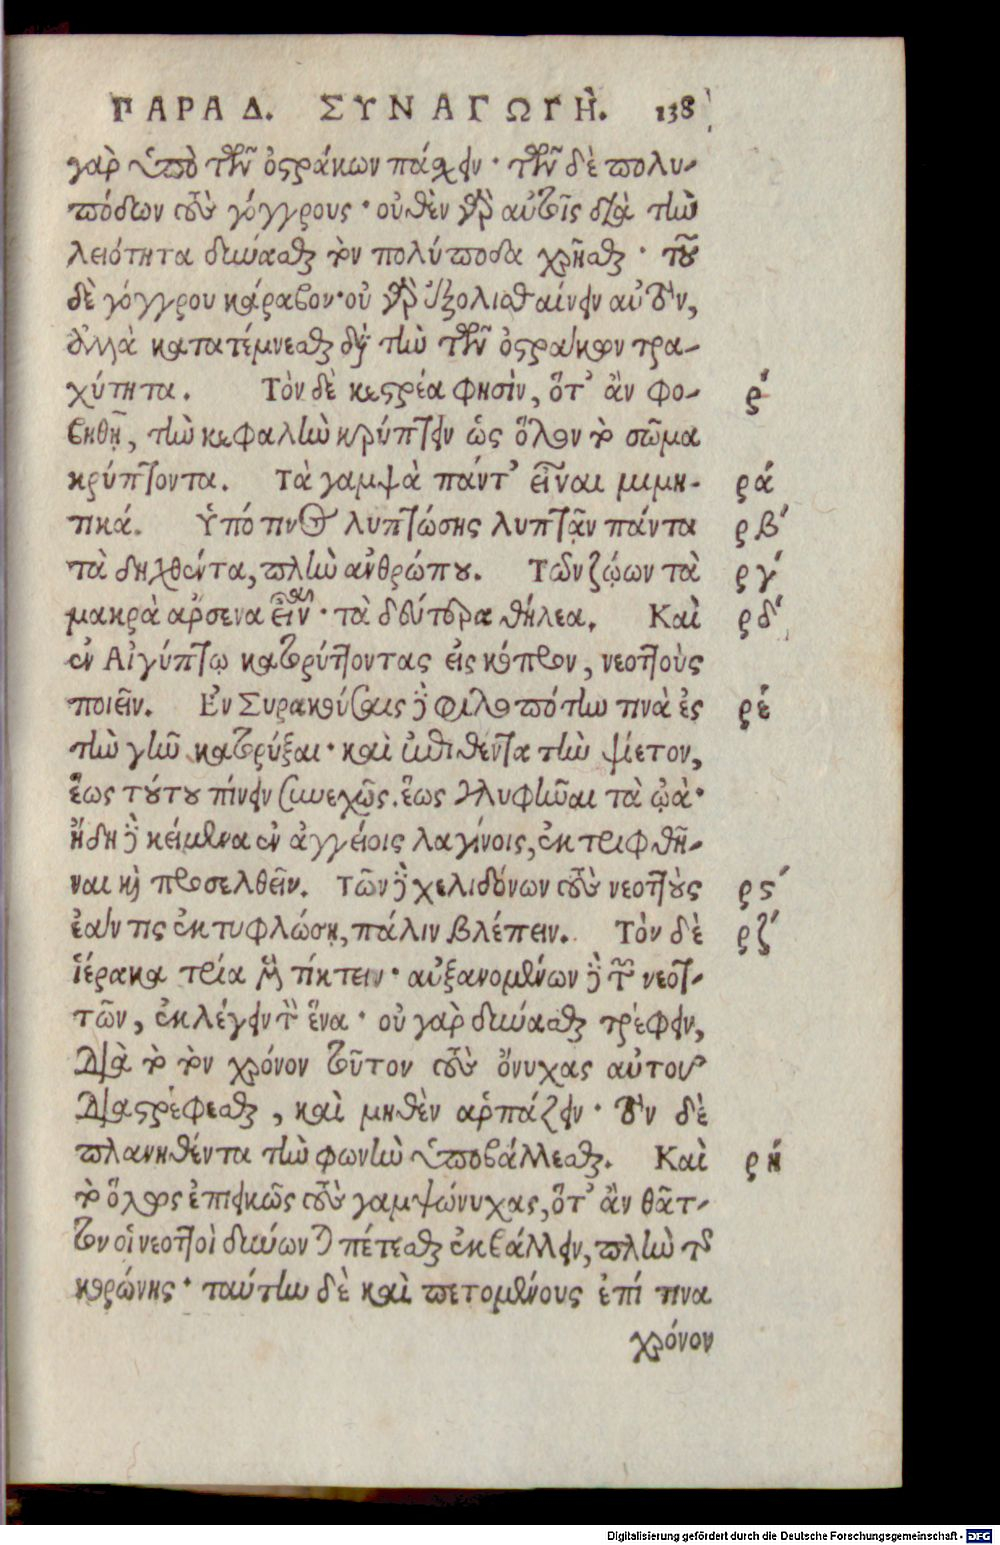 ΠΑΡΑΔ. ΣΥΝΑΓΩΓῊ. 138
γαρ ὑπὸ τῶν ὀστράκων πάσχειν· τῶν δὲ πολυ-
πόδων τοὺς γόγγρους· οὐθὲν γὰρ αὐτοῖς διὰ τὴν
λειότητα δύνασθαι τὸν πολύποδα χρῆσθαι· τοῦ
δὲ γόγγρου κάραβον· οὐ γὰρ ἐξολισθαίνειν αὐτὸν,
ἀλλὰ κατατέμνεσθαι διὰ τὴν τῶν ὀστράκων τρα-
χύτητα. Τὸν δὲ κεστρέα φησὶν, ὅτ' ἂν φο- ρ΄
βηθῇ, τὴν κεφαλὴν κρύπτειν ὡς ὅλον τὸ σῶμα
κρύπτοντα. Τὰ γαμψὰ πάντ' εἶναι μιμη- ρά
τικά. Ὑπό τινος λυπτώσης λυπτᾷν πάντα ρβ΄
τὰ δηχθέντα, πλὴν ἀνθρώπου. Τῶν ζῴων τὰ ργ΄
μακρὰ αρσενα εἶναι· τὰ δεύτερα θήλεα. Καὶ ρδ΄
ἐν Αἰγύπτῳ κατορύττοντας εἰς κόπρον, νεοττοὺς
ποιεῖν. Εν Συρακούσαις δὲ φιλοπότην τινὰ ἐς ρέ
τὴν γῆν κατορύξαι· καὶ ἐπιθέντα τὴν ψίετον,
ἕως τούτου πίνειν συνεχῶς. ἕως ἐκγλυφῆναι τὰ ᾠὰ·
ἤδη δὲ κείμενα ἐν ἀγγείοις λαγίνοις, ἐκτριφθῆ-
ναι καὶ προσελθεῖν. τῶν δὲ χελιδόνων τοὺς νεοττοὺς ρς΄
ἐάν τις ἐκτυφλώσῃ, πάλιν βλέπειν. Τὸν δὲ ρζ΄
ἱέρακα τρία μὲν τίκτειν· αὐξανομένων δὲ τῶν νεοτ-
τῶν, ἐκλέγειν τὸν ἕνα· οὐ γαρ δύνασθαι τρέφειν,
Διὰ τὸ τὸν χρόνον τοῦτον τοὺς ὄνυχας αὐτοῦ
Διαστρέφεσθαι, καὶ μηθὲν αρπάζειν· τὸν δὲ
πλανηθέντα τὴν φωνὴν ὑποβάλλεσθαι. Καὶ ρή
τὸ ὅλον ἐπιεικῶς τοὺς γαμψώνυχας, ὅτ' ἂν θᾶτ-
τον οἱ νεοττοὶ δύνωνται πέτεσθαι ἐκβάλλειν, πλὴν τῆς
κορώνης· ταύτην δὲ καὶ πετομένους ἐπί τινα
χρόνον
Digitalisierung gefördert durch die Deutsche Forschungsgemeinschaft - DFG